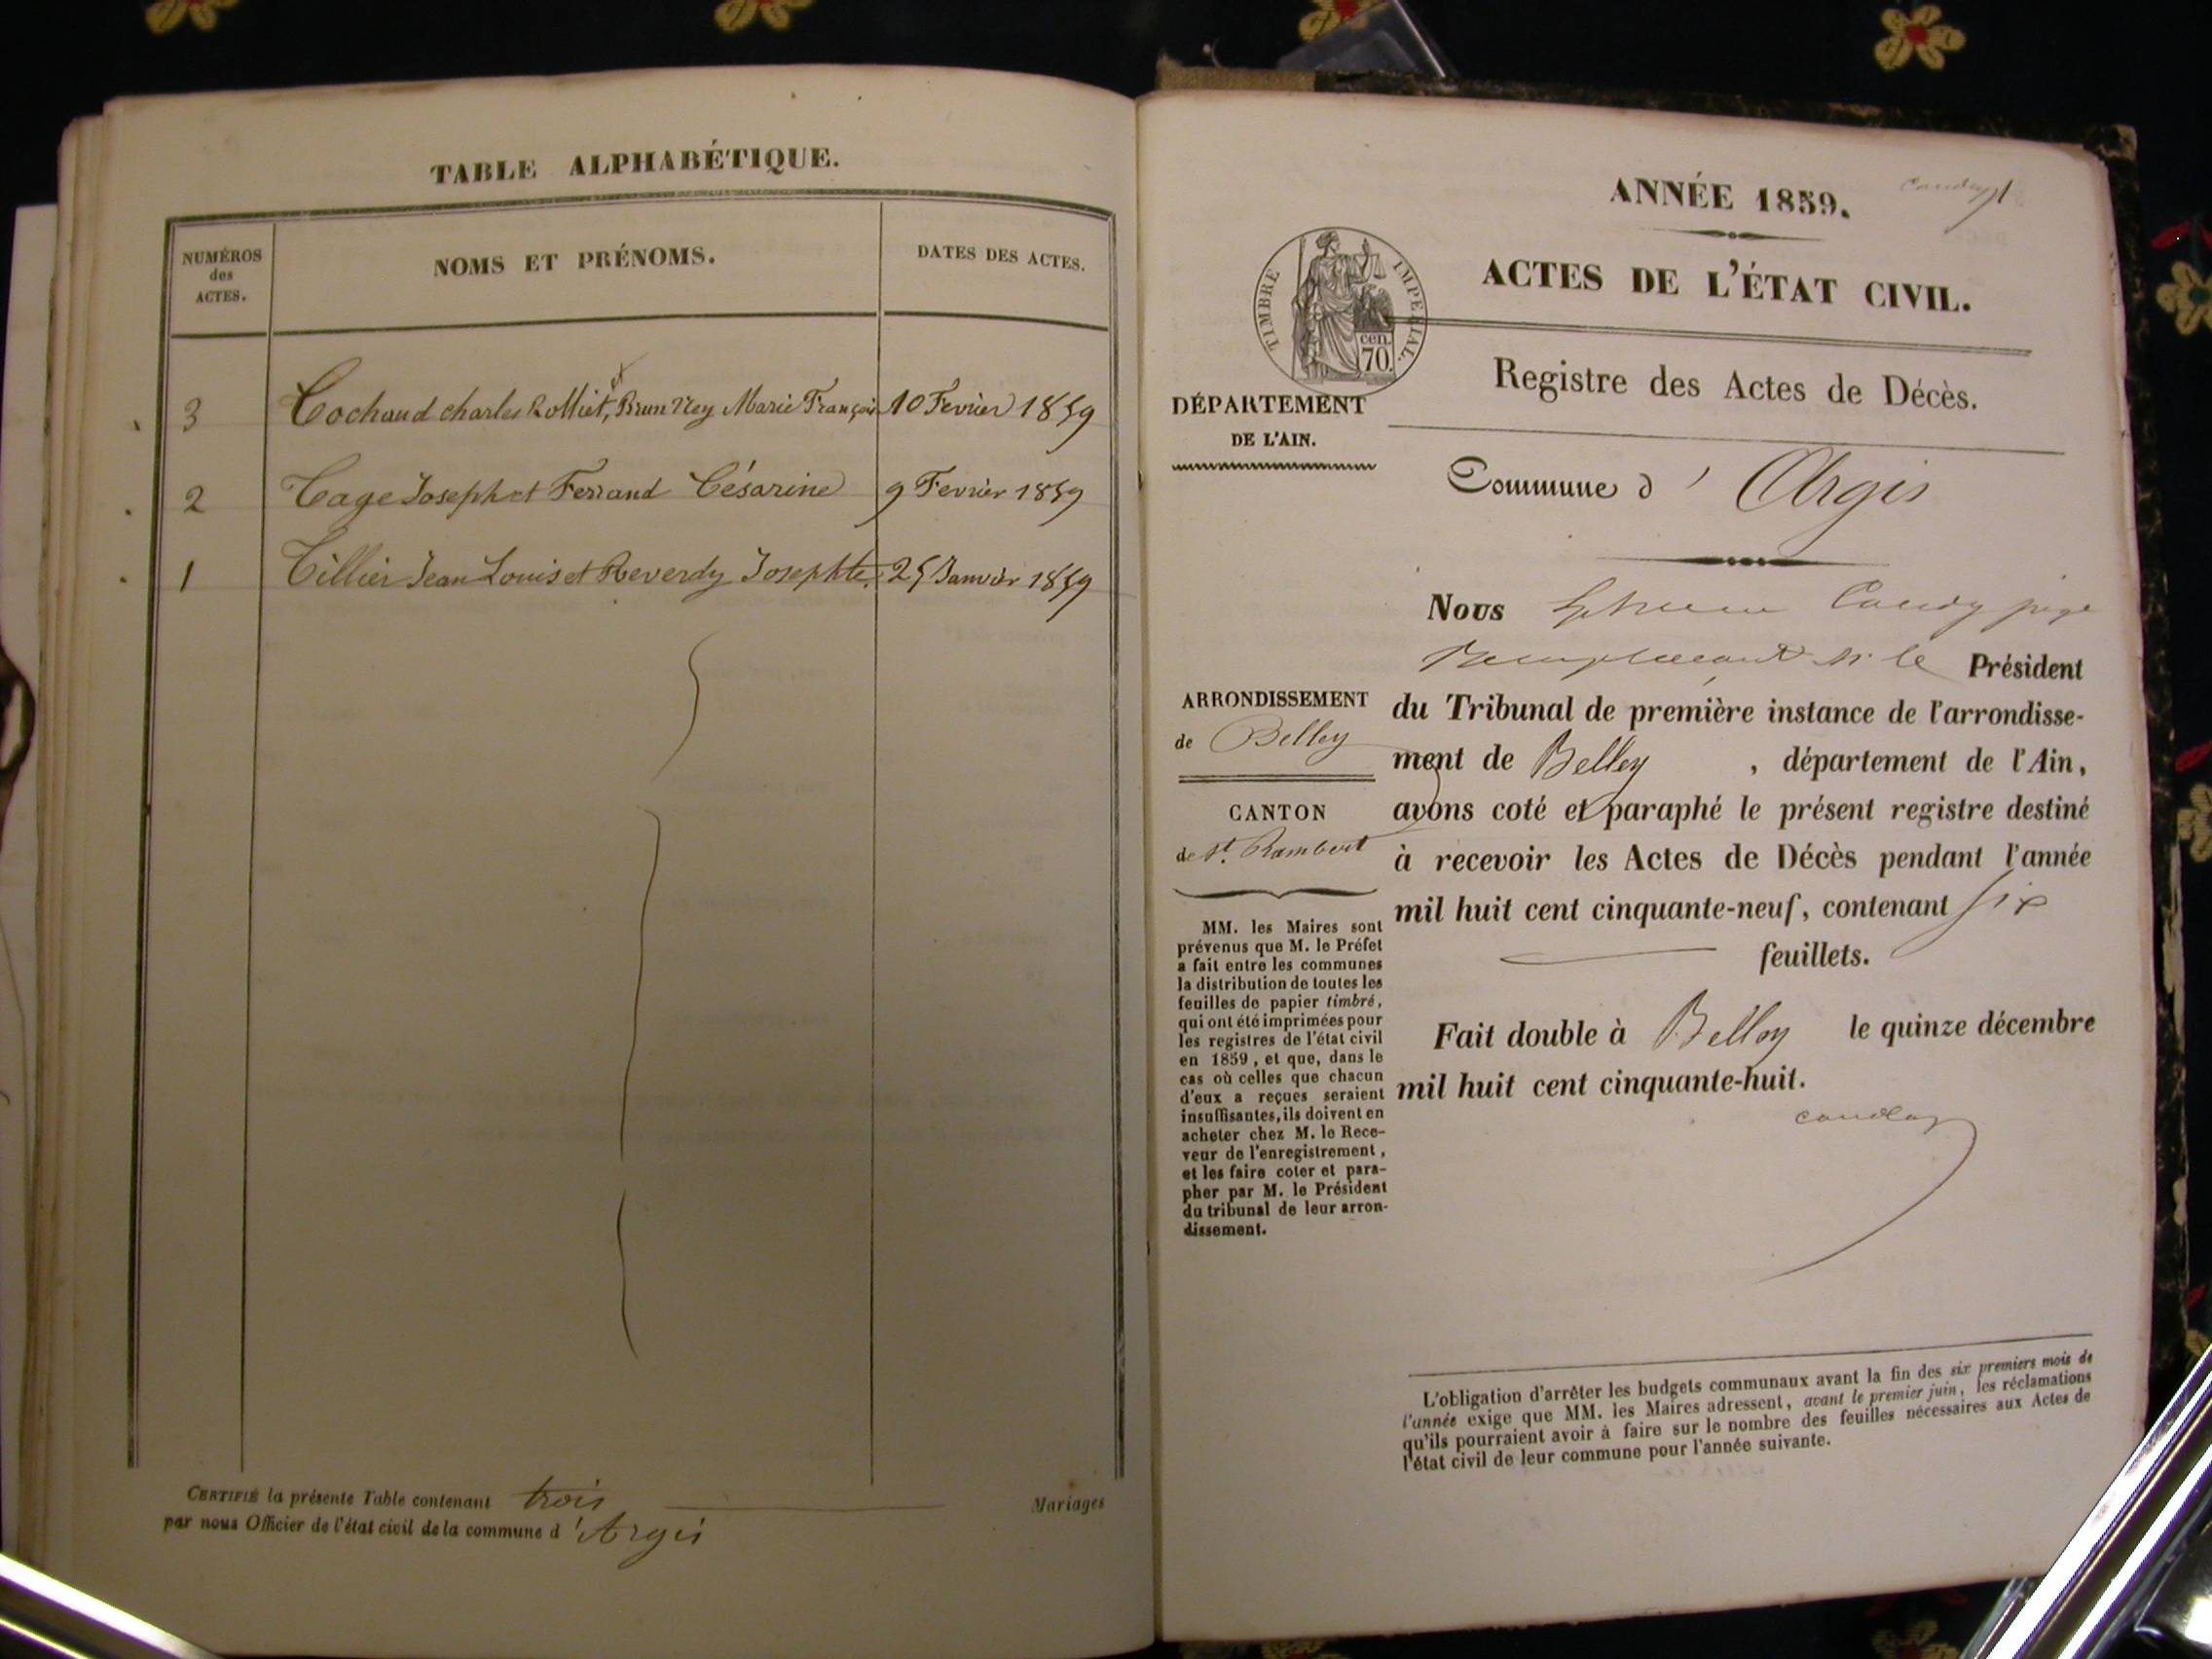 TABLE ALPHABÉTIQUE.
NUMÉROS
des
ACTES.
NOMS ET PRÉNOMS.
DATES DES ACTES.
3 Cochaud charles Rolliet, et Brun Ney Marie François 10 Fevrier 1859
2 Tage Joseph et Ferrand Césarine 9 Fevrier 1859
1 Tillier Jean Louis et Reverdy Josephte 25 Janvier 1859
CERTIFIÉ la présente Table contenant trois Mariages
par nous Officier de l'état civil de la commune d'Argis
ANNÉE 1859.
1
ACTES DE L'ÉTAT CIVIL.
TIMBRE IMPERIAL.
cen.
70.
Registre des Actes de Décès.
DÉPARTEMENT
DE L'AIN.
Commune d' Argis
Nous juge
Remplaçant Mr le Président
du Tribunal de première instance de l'arrondisse-
ment de Belley, département de l'Ain,
avons coté et paraphé le présent registre destiné
à recevoir les Actes de Décès pendant l'année
mil huit cent cinquante-neuf, contenant six
feuillets.
Fait double à Belley le quinze décembre
mil huit cent cinquante-huit.
ARRONDISSEMENT
de Belley
CANTON
de St. Rambert
MM. les Maires sont
prévenus que M. le Préfet
a fait entre les communes
la distribution de toutes les
feuilles de papier timbré,
qui ont été imprimées pour
les registres de l'état civil
en 1859, et que, dans le
cas où celles que chacun
d'eux a reçues seraient
insuffisantes, ils doivent en
acheter chez M. le Rece-
veur de l'enregistrement,
et les faire coter et para-
pher par M. le Président
du tribunal de leur arron-
dissement.
L'obligation d'arrêter les budgets communaux avant la fin des six premiers mois de
l'année exige que MM. les Maires adressent, avant le premier juin, les réclamations
qu'ils pourraient avoir à faire sur le nombre des feuilles nécessaires aux Actes de
l'état civil de leur commune pour l'année suivante.